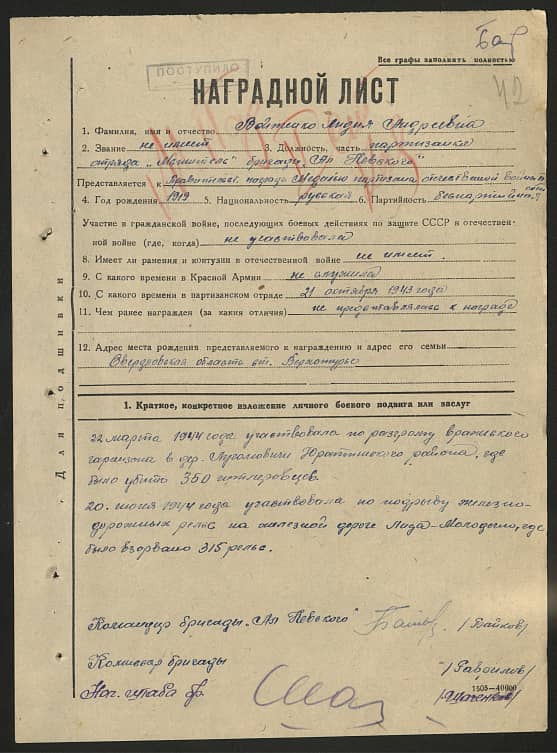 Все графы заполнять полностью
ПОСТУПИЛО
42
НАГРАДНОЙ ЛИСТ
1. Фамилия, имя и отчество Войтенко Лидия Андреевна
2. Звание не имеет 3. Должность, часть партизанка
отряда „Мститель" бригады „Ал Невского"
Представляется к Правительст. награде Медалью партизана отечественной войны
4. Год рождения 1919 5. Национальность русская 6. Партийность беспартийная
Участие в гражданской войне, последующих боевых действиях по защите СССР и отечествен-
ной войне (где, когда) не участвовала
8. Имеет ли ранения и контузии в отечественной войне не имеет.
9. С какого времени в Красной Армии не служила
10. С какого времени в партизанском отряде 21 октября 1943 года
11. Чем ранее награжден (за какия отличия) не представлялась к награде
12. Адрес места рождения представляемого к награждению и адрес его семьи
Свердловская область ст. Верхотурье
Для подшивки
1. Краткое, конкретное изложение личного боевого подвига или заслуг
22 марта 1944 года участвовала по разгрому вражеского
гарнизона в дер. Лугомовичи Юратишского района, где
было убито 350 гитлеровцев.
20. июня 1944 года участвовала по подрыву железно-
дорожных рельс на железной дороге Лида-Молодечно, где
было взорвано 315 рельс.
Командир бригады „Ал Невского" /Байков/
Комиссар бригады /Гаврилов/
Нач. штаба бр.
1505—40000